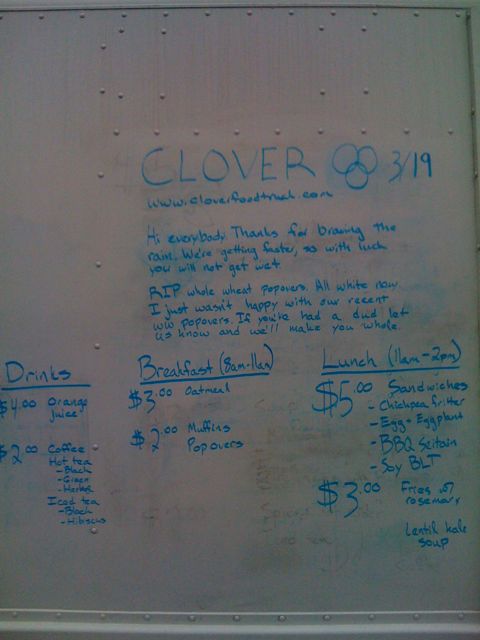 CLOVER 3/19
www.cloverfoodtruck.com
Hi everybody Thanks for braving the
rain. We're getting faster, so with luck
you will not get wet.
RIP whole wheat popovers. All white now
I just wasn't happy with our recent
ww popovers. If you've had a dud let
us know and we'll make you whole.
Drinks
$4.00 Orange
juice
$2.00 Coffee
Hot tea
- Black
- Green
- Herbal
Iced tea
- Black
- Hibiscus
Breakfast (8am-11am)
$3.00 Oatmeal
$2.00 Muffins
Popovers
Lunch (11am-2pm)
$5.00 Sandwiches
- Chickpea fritter
- Egg + Eggplant
- BBQ Seitan
- Soy BLT
$3.00 Fries w/
rosemary
Lentil kale
soup